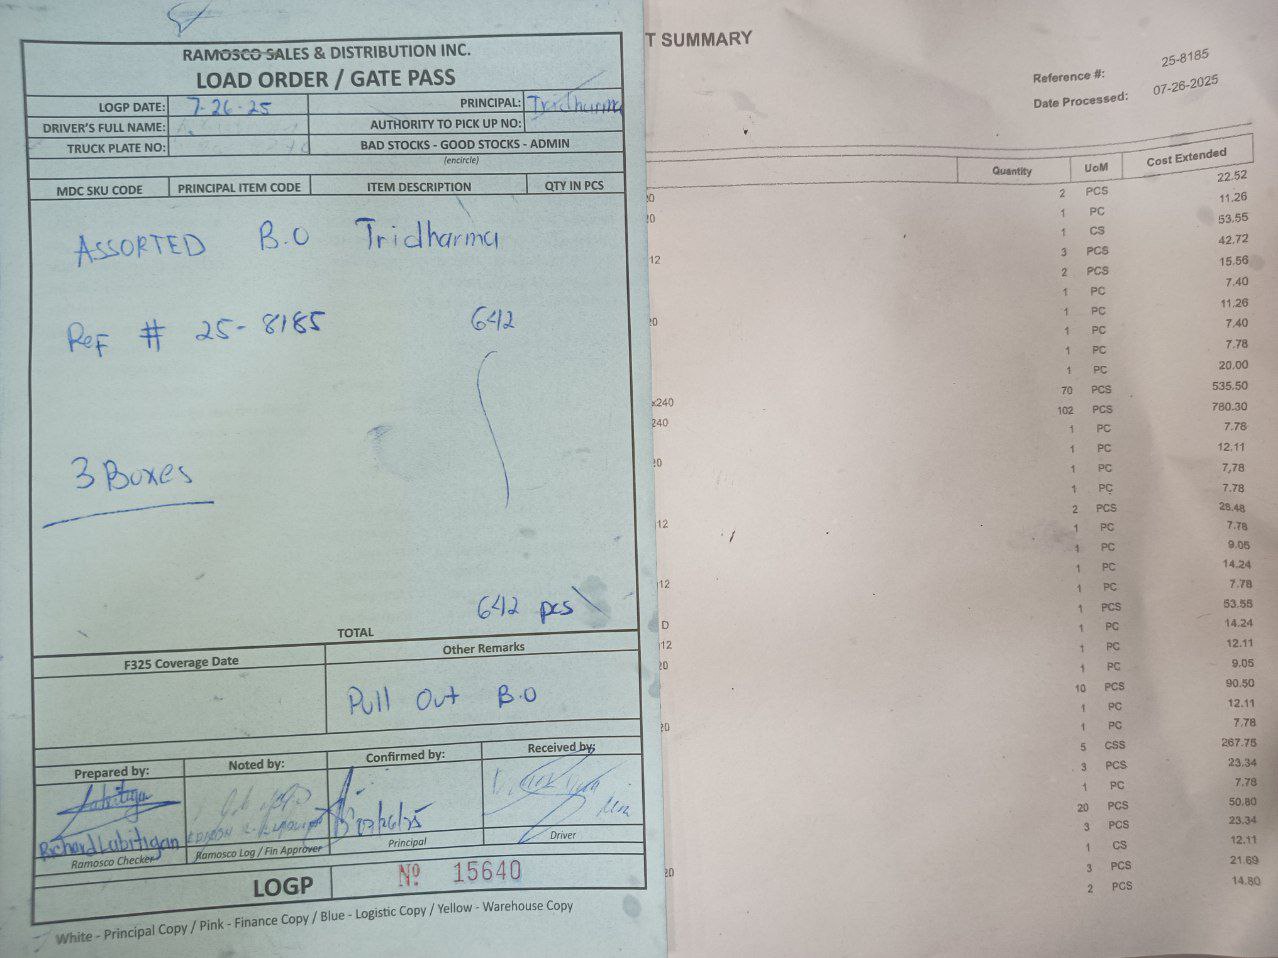 RAMOSCO SALES & DISTRIBUTION INC.
LOAD ORDER / GATE PASS
LOGP DATE: 7-26-25 PRINCIPAL: Tridharma
DRIVER'S FULL NAME: AUTHORITY TO PICK UP NO:
TRUCK PLATE NO: BAD STOCKS - GOOD STOCKS - ADMIN
(encircle)
MDC SKU CODE PRINCIPAL ITEM CODE ITEM DESCRIPTION QTY IN PCS
ASSORTED B.O Tridharma
Ref # 25-8185 642
3 Boxes
642 pcs
TOTAL
F325 Coverage Date Other Remarks
Pull Out B.O
Prepared by: Noted by: Confirmed by: Received by:
Richard Lubitigan 07/26/25
Ramosco Checker Ramosco Log / Fin Approver Principal Driver
LOGP Nº 15640
White - Principal Copy / Pink - Finance Copy / Blue - Logistic Copy / Yellow - Warehouse Copy
T SUMMARY
Reference #: 25-8185
Date Processed: 07-26-2025
Quantity UoM Cost Extended
2 PCS 22.52
1 PC 11.26
1 CS 53.55
3 PCS 42.72
2 PCS 15.56
1 PC 7.40
1 PC 11.26
1 PC 7.40
1 PC 7.78
1 PC 20.00
70 PCS 535.50
102 PCS 780.30
1 PC 7.78
1 PC 12.11
1 PC 7.78
1 PC 7.78
2 PCS 28.48
1 PC 7.78
1 PC 9.05
1 PC 14.24
1 PC 7.78
1 PCS 53.55
1 PC 14.24
1 PC 12.11
1 PC 9.05
10 PCS 90.50
1 PC 12.11
1 PC 7.78
5 CSS 267.75
3 PCS 23.34
1 PC 7.78
20 PCS 50.80
3 PCS 23.34
1 CS 12.11
3 PCS 21.69
2 PCS 14.80